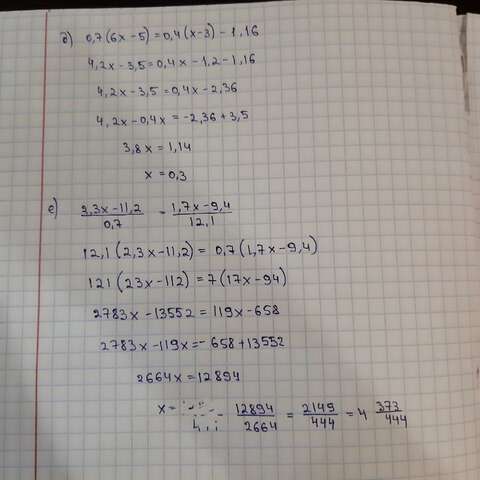 д) 0,7(6x-5)=0,4(x-3)-1,16
4,2x-3,5=0,4x-1,2-1,16
4,2x-3,5=0,4x-2,36
4,2x-0,4x=-2,36+3,5
3,8x=1,14
x=0,3
е) 2,3x-11,2/0,7 = 1,7x-9,4/12,1
12,1(2,3x-11,2)= 0,7(1,7x-9,4)
121(23x-112)=7(17x-94)
2783x-13552=119x-658
2783x-119x=-658+13552
2664x=12894
x= 12894/2664 = 2149/444 = 4 373/444